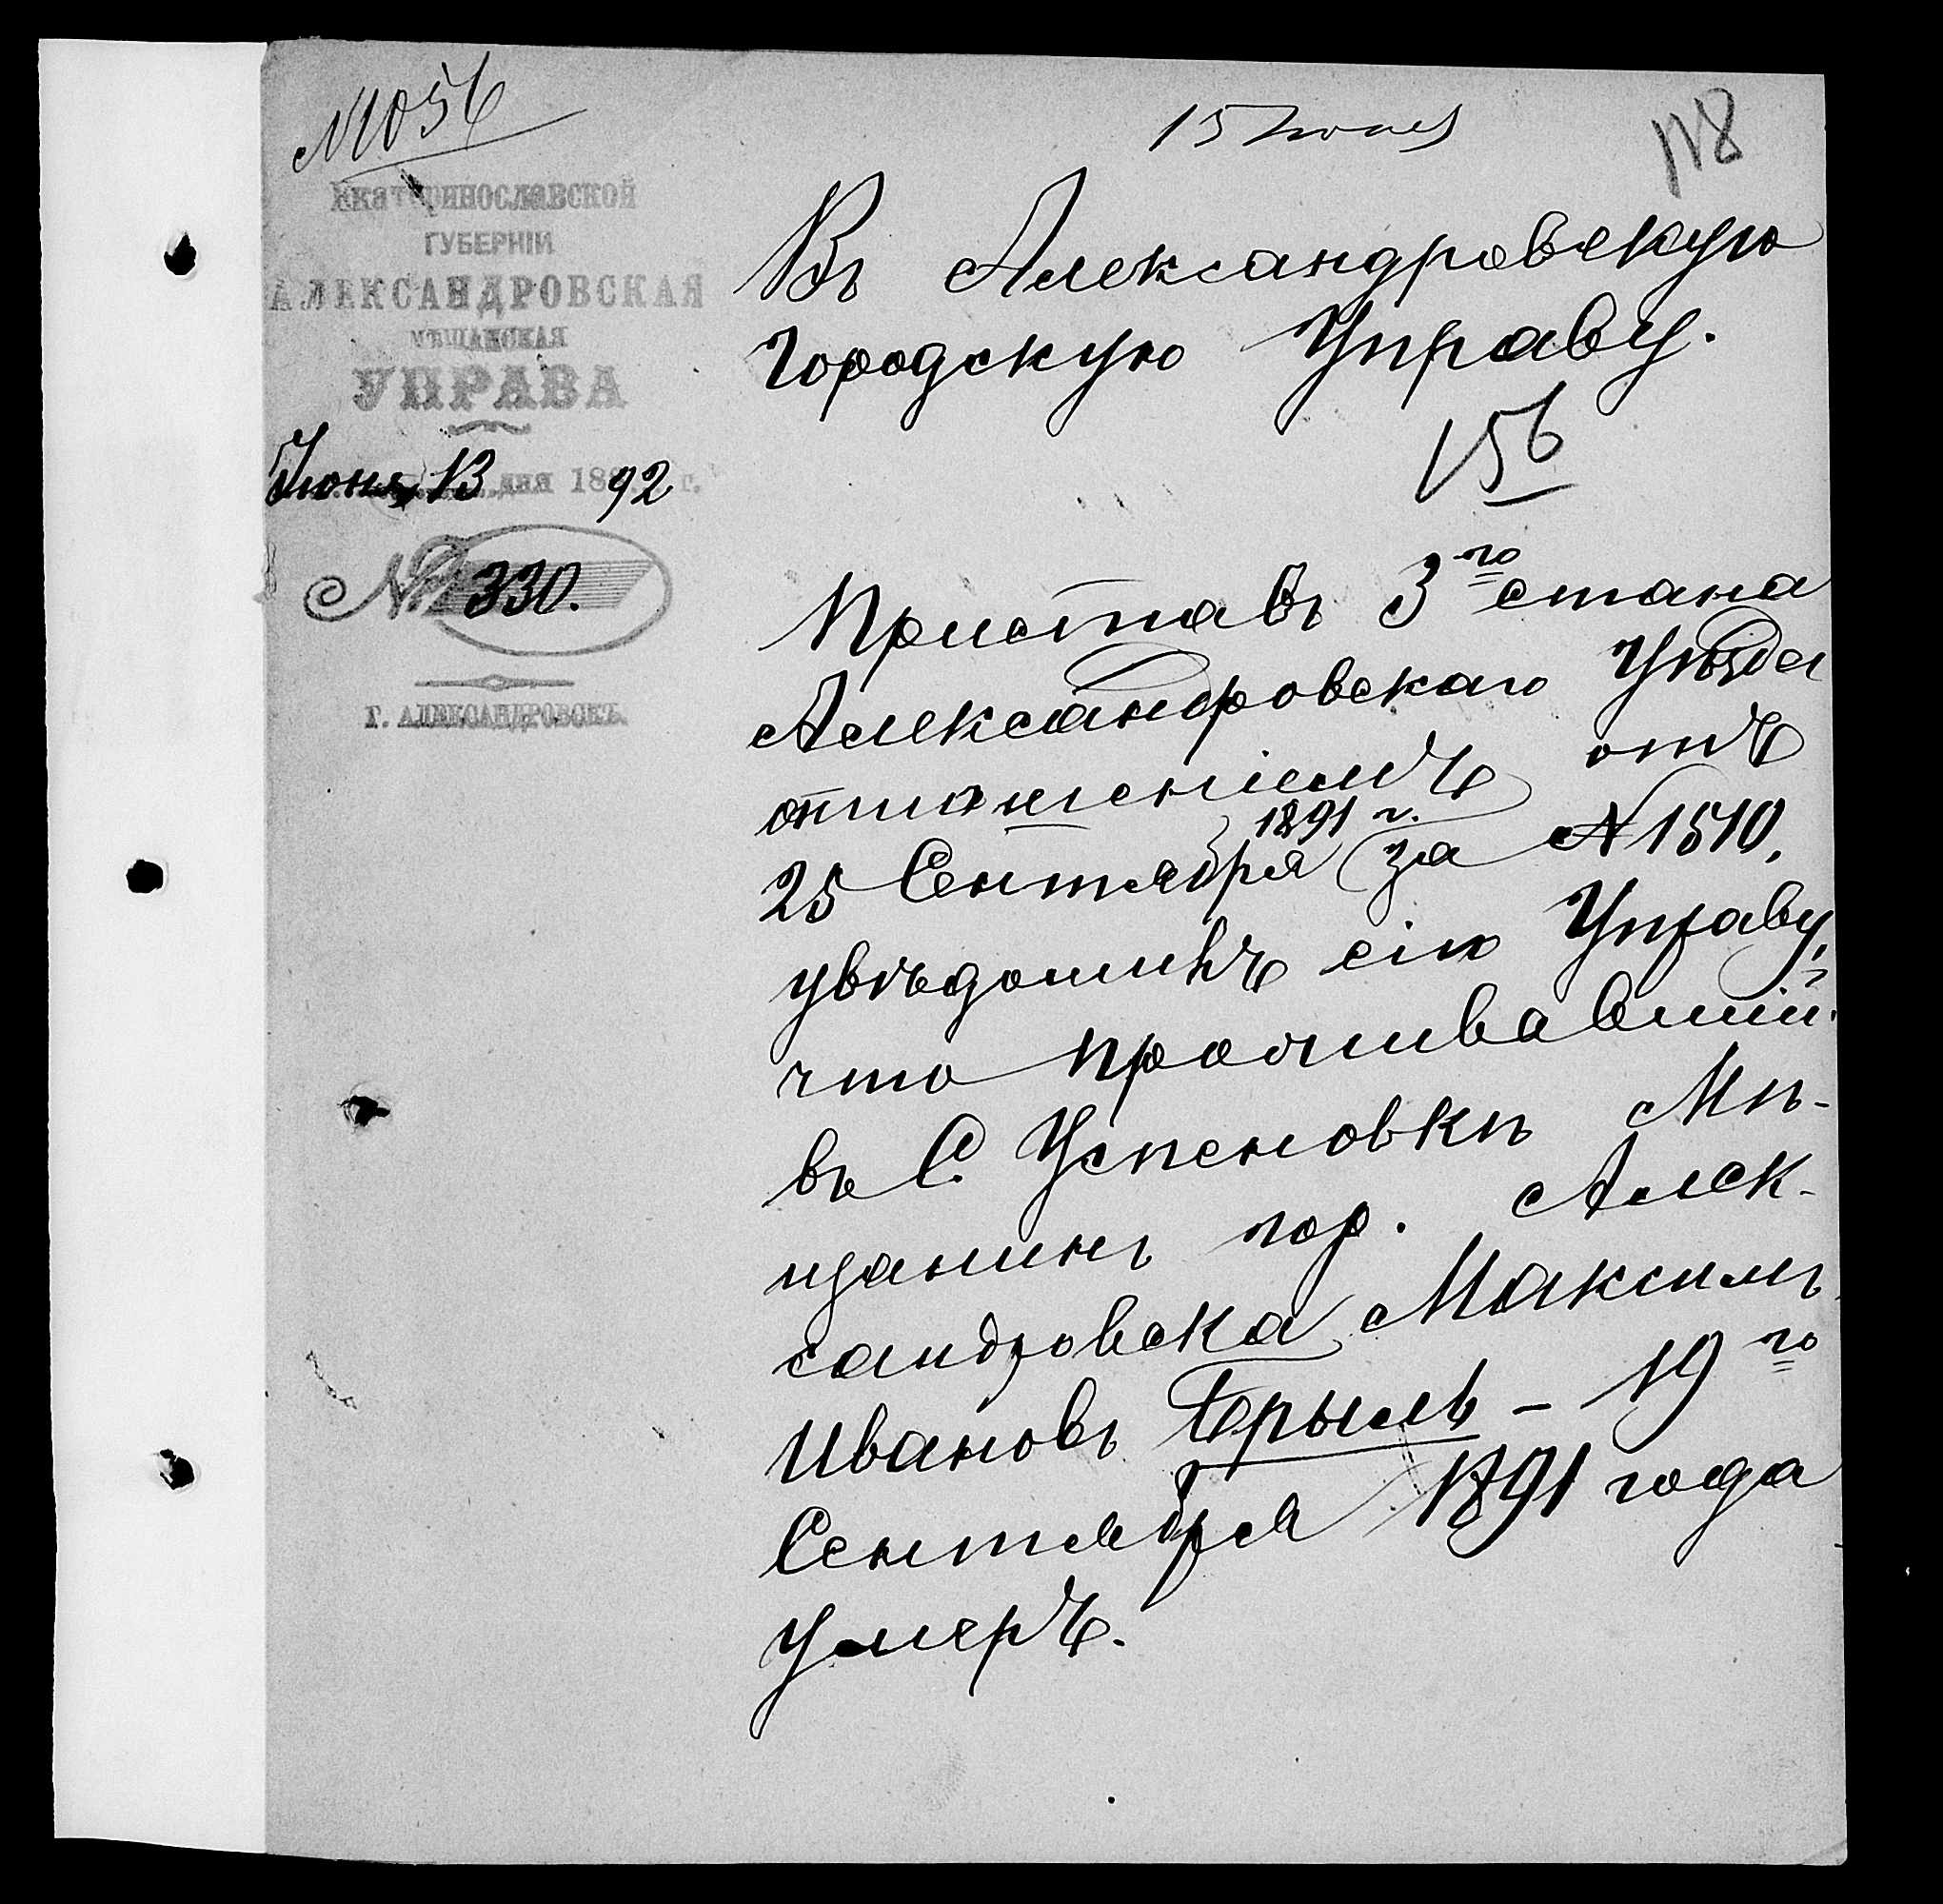 № 1056
15 Июня
118
Екатеринославской
ГУБЕРНІИ
АЛЕКСАНДРОВСКАЯ
МѢЩАНСКАЯ
УПРАВА
Июня 13 дня 1892 г.
№ 330.
Г. АЛЕКСАНДРОВСКЪ.
Въ Александровскую
Городскую Управу.
156
Приставъ 3го стана
Александровскаго Уѣзда
отношеніемъ отъ
25 Сентября 1891 г. за № 1510,
увѣдомилъ сію Управу,
что проживавшій
въ С. Успеновкѣ Мѣ-
щанинъ гор. Алек-
сандровска Максимъ
Ивановъ Брыль - 19го
Сентября 1891 года
умеръ.